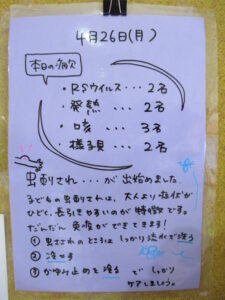 4月26日(月)
本日の病欠
・RSウイルス・・・2名
・発熱 ・・・ 2名
・咳 ・・・ 3名
・様子見 ・・・ 2名
虫刺され・・・が出始めました。
子どもの虫刺されは、大人より症状が
ひどく、長引きやすいのが特徴です。
だんだん免疫ができてきます!
① 虫さされのところはしっかり流水で洗う
② 冷やす
③ かゆみ止めを塗る でしっかり
ケアしましょう。